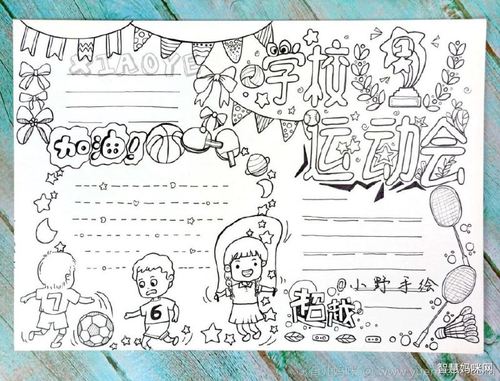 XIAOYE
学校
运动会
加油!
7
6
@小野手绘
超越
智慧妈咪网